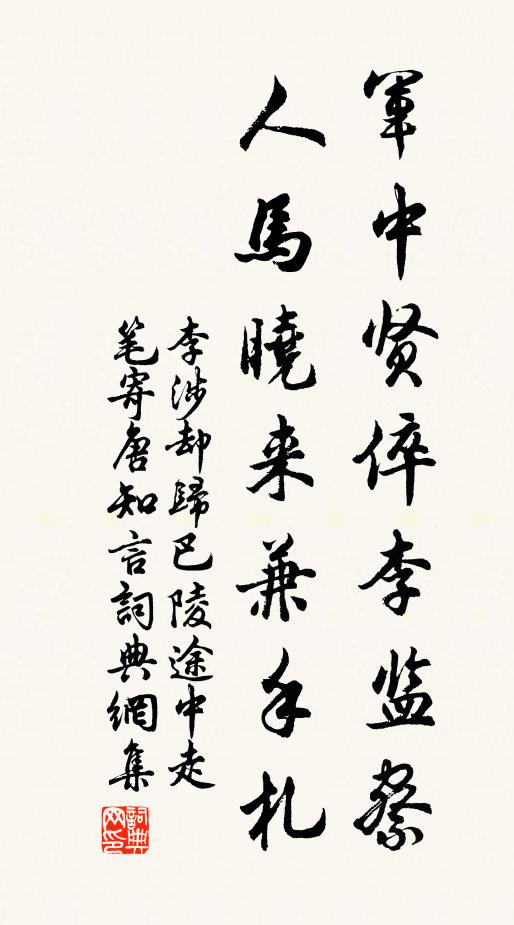 軍中贤倅李监察
人馬曉来兼手札
李涉却歸巴陵途中走
笔寄唐知言詞典網集
詞典
网印